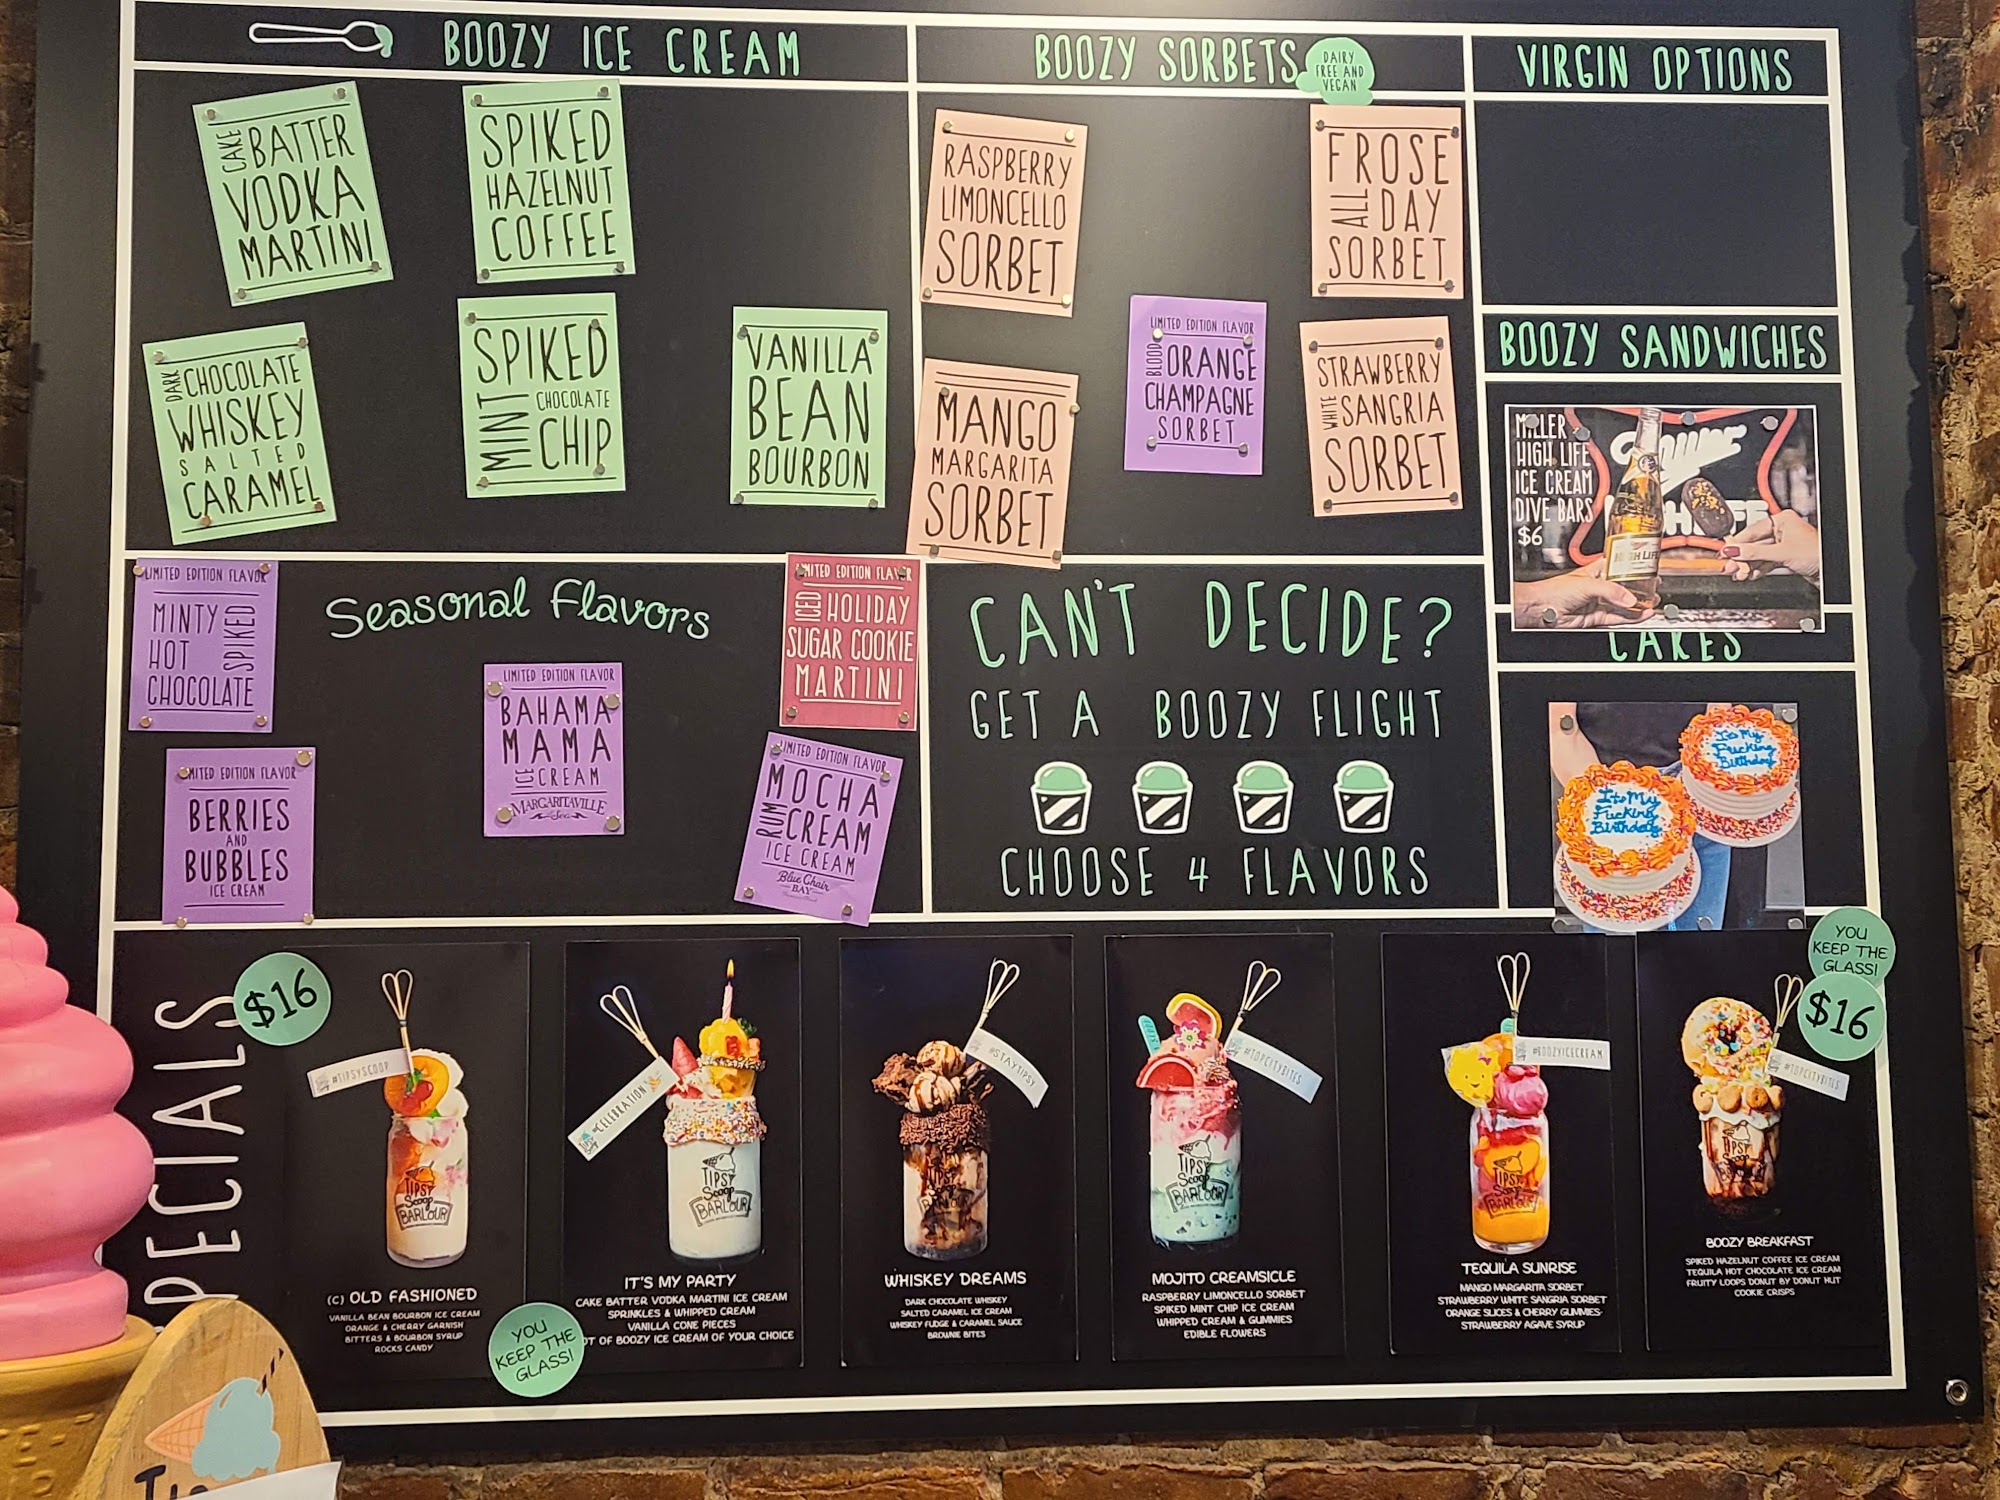 BOOZY ICE CREAM
CAKE BATTER
VODKA
MARTINI
SPIKED
HAZELNUT
COFFEE
DARK CHOCOLATE
WHISKEY
SALTED
CARAMEL
SPIKED
MINT CHOCOLATE
CHIP
VANILLA
BEAN
BOURBON
BOOZY SORBETS
DAIRY
FREE AND
VEGAN
RASPBERRY
LIMONCELLO
SORBET
FROSE
ALL DAY
SORBET
LIMITED EDITION FLAVOR
BLOOD ORANGE
CHAMPAGNE
SORBET
MANGO
MARGARITA
SORBET
STRAWBERRY
WHITE SANGRIA
SORBET
VIRGIN OPTIONS
BOOZY SANDWICHES
MILLER
HIGH LIFE
ICE CREAM
DIVE BARS
$6
HIGH LIFE
CAKES
It's My
Fucking
Birthday
It's My
Fucking
Birthday
Seasonal Flavors
LIMITED EDITION FLAVOR
MINTY
HOT SPIKED
CHOCOLATE
LIMITED EDITION FLAVOR
BERRIES
AND
BUBBLES
ICE CREAM
LIMITED EDITION FLAVOR
BAHAMA
MAMA
ICE CREAM
MARGARITAVILLE
at Sea
LIMITED EDITION FLAVOR
ICED HOLIDAY
SUGAR COOKIE
MARTINI
LIMITED EDITION FLAVOR
MOCHA
RUM CREAM
ICE CREAM
Blue Chair
BAY
CAN'T DECIDE?
GET A BOOZY FLIGHT
CHOOSE 4 FLAVORS
SPECIALS
$16
#TIPSYSCOOP
TIPSY
Scoop
BARLOUR
(C) OLD FASHIONED
VANILLA BEAN BOURBON ICE CREAM
ORANGE & CHERRY GARNISH
BITTERS & BOURBON SYRUP
ROCKS CANDY
YOU
KEEP THE
GLASS!
#CELEBRATION
TIPSY
Scoop
BARLOUR
IT'S MY PARTY
CAKE BATTER VODKA MARTINI ICE CREAM
SPRINKLES & WHIPPED CREAM
VANILLA CONE PIECES
OT OF BOOZY ICE CREAM OF YOUR CHOICE
#STAYTIPSY
WHISKEY DREAMS
DARK CHOCOLATE WHISKEY
SALTED CARAMEL ICE CREAM
WHISKEY FUDGE & CARAMEL SAUCE
BROWNIE BITES
#TOPCITYBITES
TIPSY
Scoop
BARLOUR
MOJITO CREAMSICLE
RASPBERRY LIMONCELLO SORBET
SPIKED MINT CHIP ICE CREAM
WHIPPED CREAM & GUMMIES
EDIBLE FLOWERS
#BOOZYICECREAM
TIPSY
Scoop
BARLOUR
TEQUILA SUNRISE
MANGO MARGARITA SORBET
STRAWBERRY WHITE SANGRIA SORBET
ORANGE SLICES & CHERRY GUMMIES
STRAWBERRY AGAVE SYRUP
YOU
KEEP THE
GLASS!
$16
#TOPCITYBITES
BOOZY BREAKFAST
SPIKED HAZELNUT COFFEE ICE CREAM
TEQUILA HOT CHOCOLATE ICE CREAM
FRUITY LOOPS DONUT BY DONUT HUT
COOKIE CRISPS